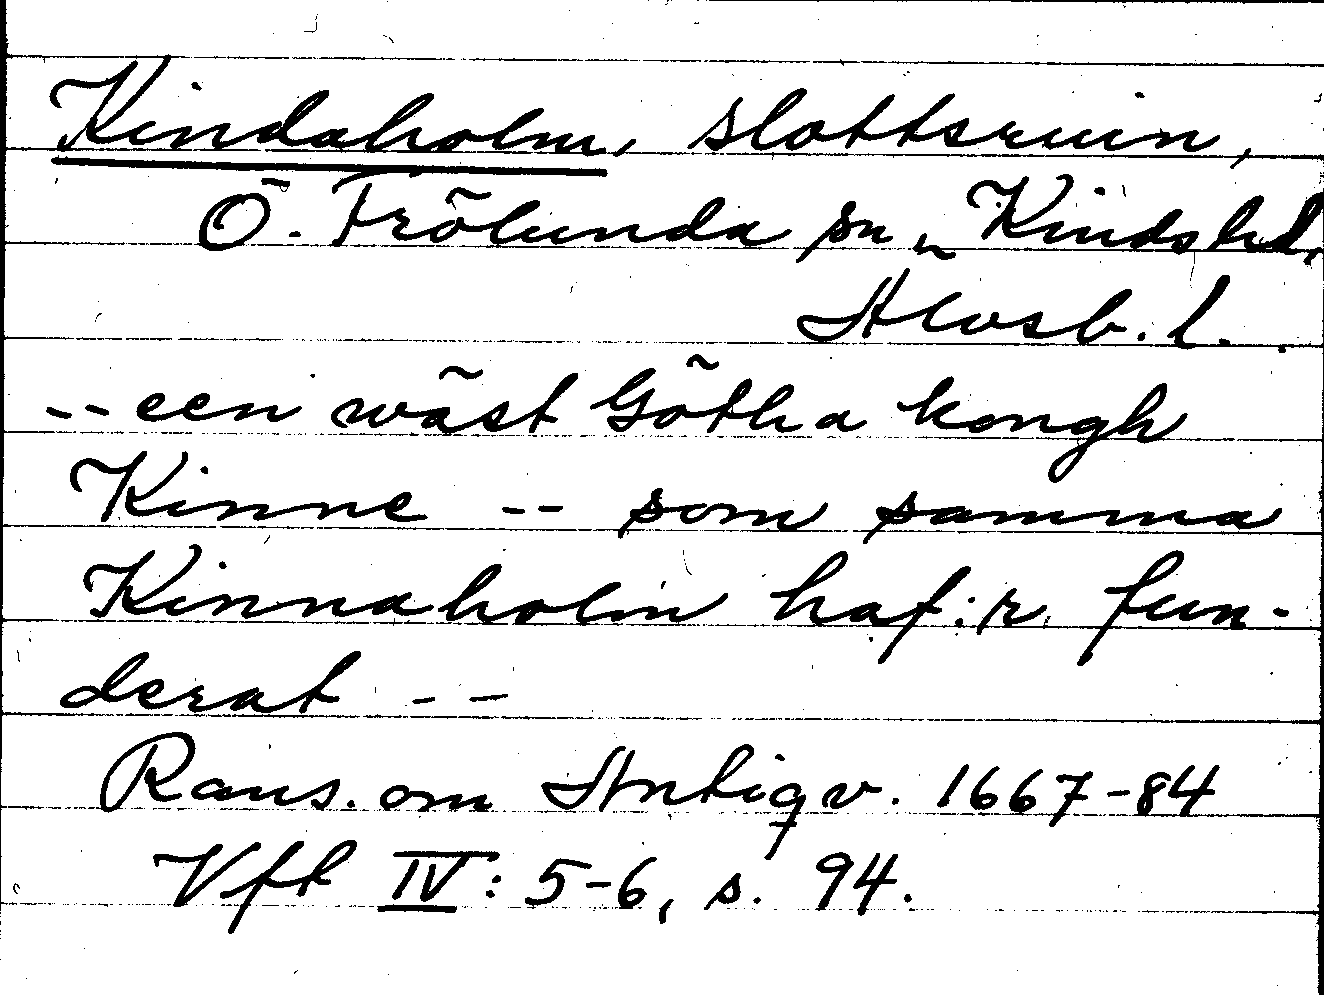 Kindaholm, slottsruin,
Ö. Frölunda sn, Kinds hd,
Älvsb. l.
-- een wäst Götha kongh
Kinne -- som samma
Kinnaholm haf:r fun-
derat --
Rans. om Antiqv. 1667-84
Vft IV: 5-6, s. 94.